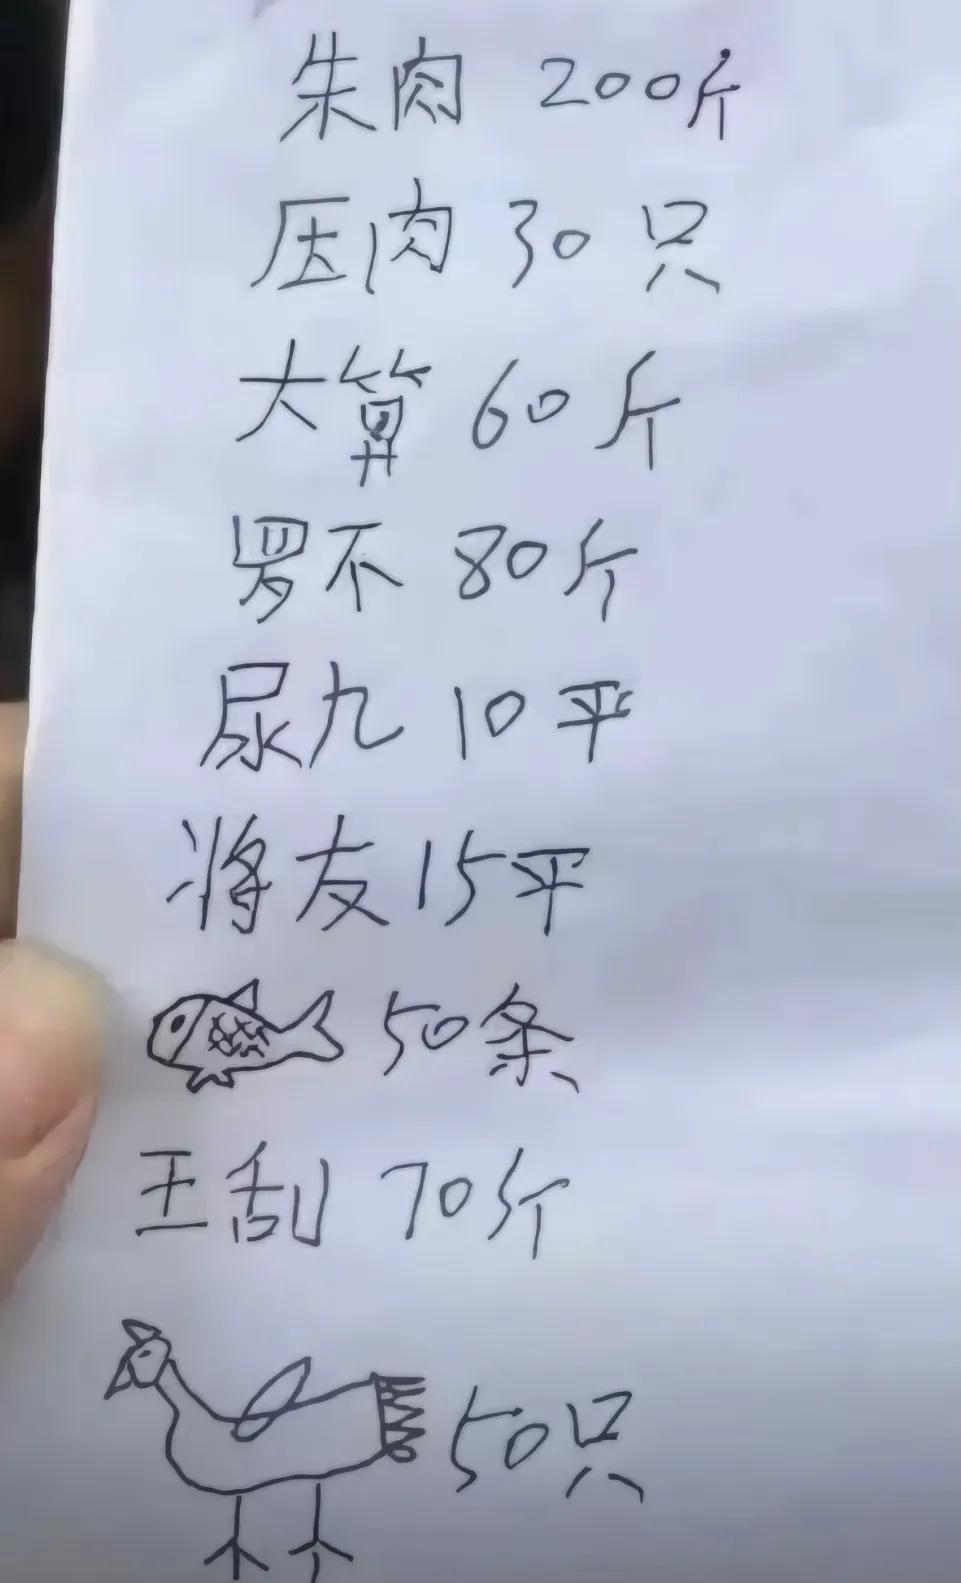 朱肉 200斤
压肉 30只
大算 60斤
罗不 80斤
尿九 10平
将友 15平
50条
王刮 70斤
50只